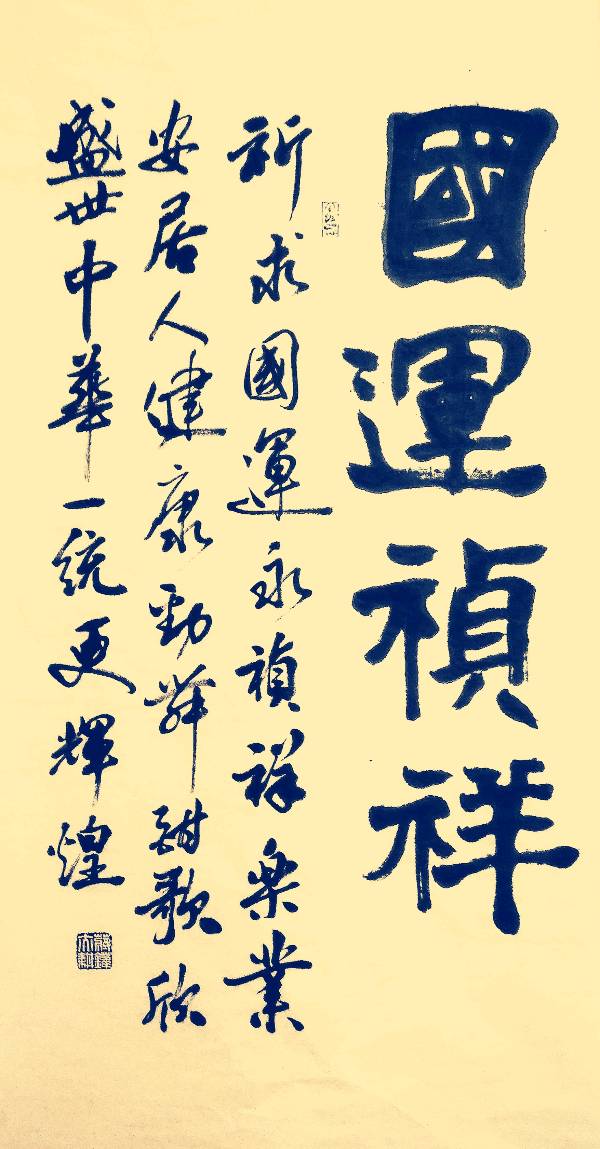 國運禎祥
祈求國運永禎祥樂業
安居人健康勁舞酣歌欣
盛世中華一統更輝煌